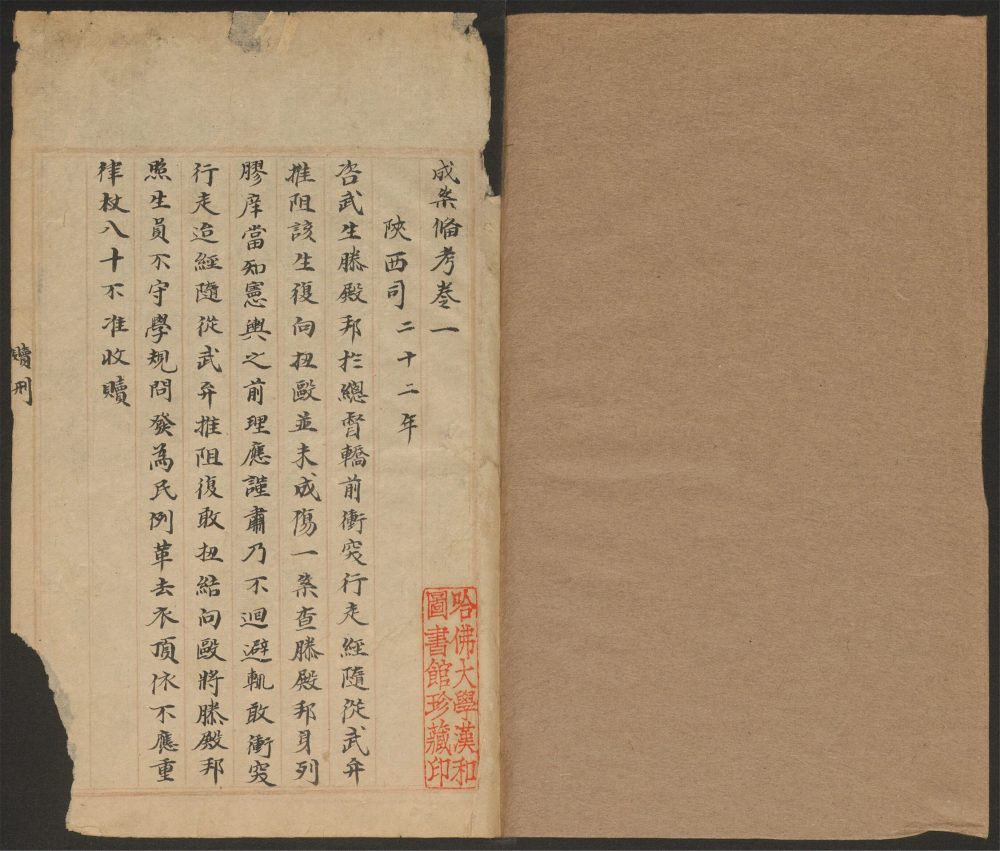 成案俻考卷一
陝西司二十二年
咨武生滕殿邦扵總督轎前衝突行走經隨從武弁
推阻該生復向扭毆並未成傷一案查滕殿邦身列
膠庠當知憲輿之前理應謹肅乃不迴避輒敢衝突
行走迨經隨從武弁推阻復敢扭結向毆將滕殿邦
照生員不守學規問發為民例革去衣頂依不應重
律杖八十不准收贖
贖刑
哈佛大學漢和
圖書館珍藏印